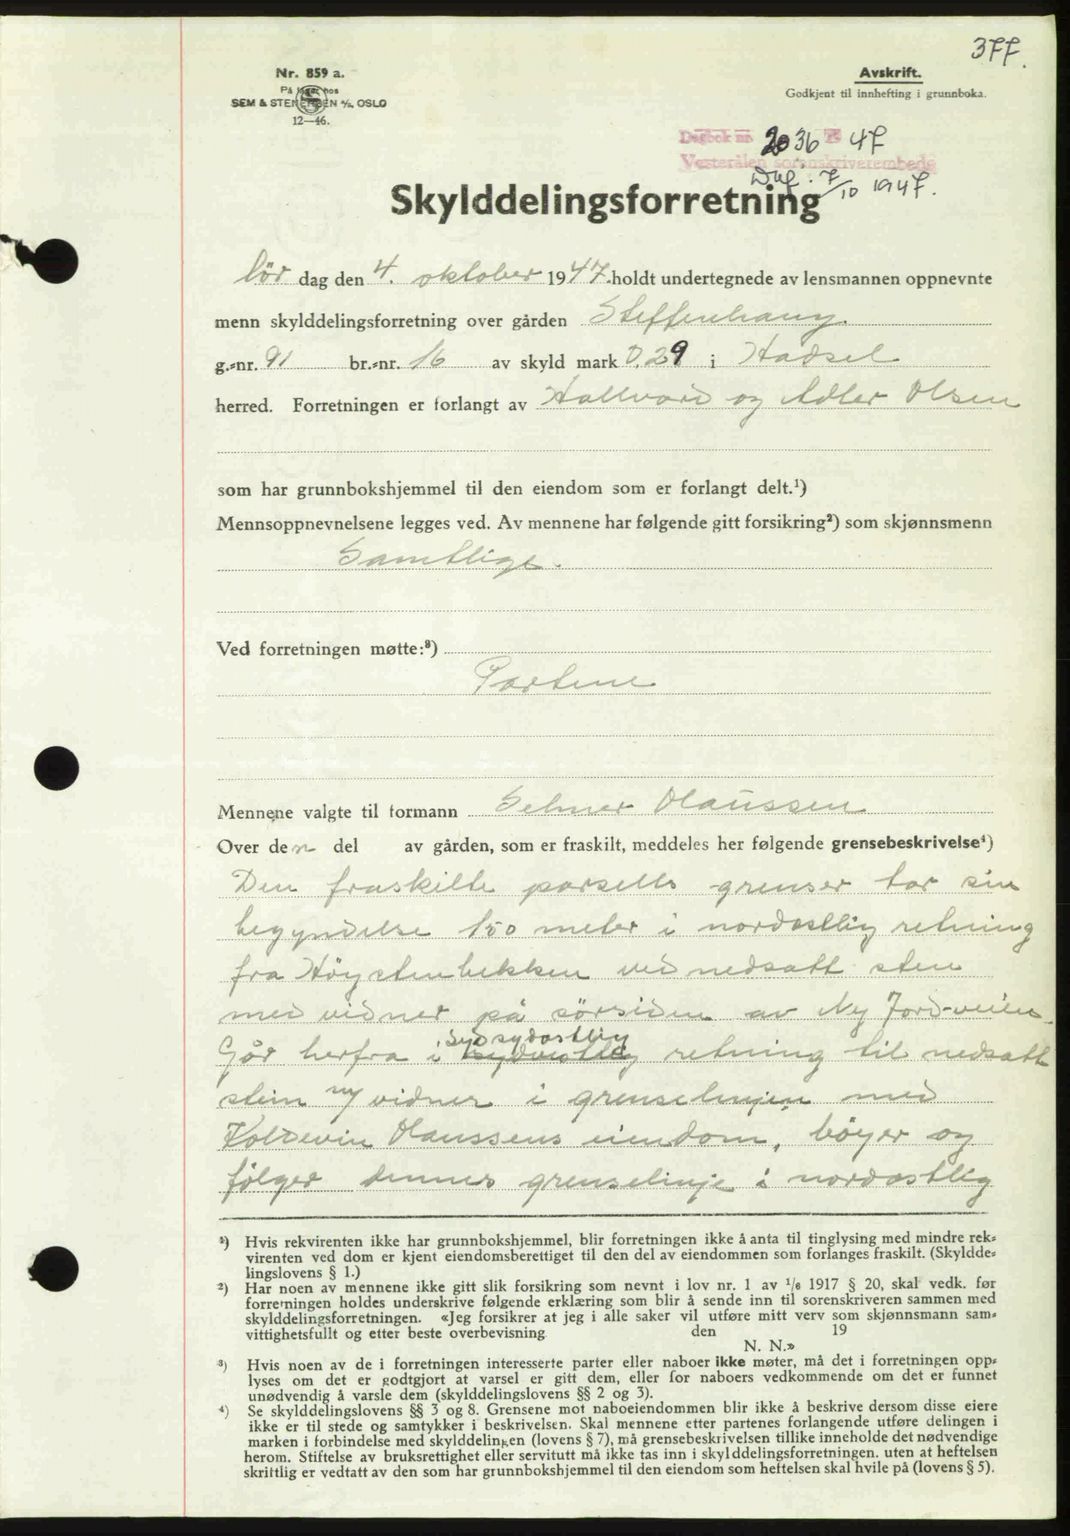 377.
Nr. 859 a.
På lager hos
SEM & STENERSEN A/S, OSLO
12—46.
Avskrift.
Godkjent til innhefting i grunnboka.
Dagbok nr. 2036 47
Vesterålen sorenskriverembede
7/10 1947.
Skylddelingsforretning
Lör dag den 4. oktober 1947. holdt undertegnede av lensmannen oppnevnte
menn skylddelingsforretning over gården Steffenhaug.
g.-nr. 91 br.-nr. 16 av skyld mark 0,29 i Hadsel
herred. Forretningen er forlangt av Hallvard og Adler Olsen
som har grunnbokshjemmel til den eiendom som er forlangt delt.¹)
Mennsoppnevnelsene legges ved. Av mennene har følgende gitt forsikring²) som skjønnsmenn
Samtlige.
Ved forretningen møtte:³)
Partene
Mennene valgte til formann Selmer Olaussen
Over den del av gården, som er fraskilt, meddeles her følgende grensebeskrivelse⁴)
Den fraskilte parsells grenser tar sin
begyndelse 150 meter i nordostlig retning
fra Höystenbekken ved nedsatt sten
med vidner på sörsiden av Ny Jord-veien.
Går herfra i sydsydostlig retning til nedsatt
stein m/ vidner i grenselinjen med
Koldevin Olaussens eiendom, böyer og
fölger dennes grenselinje i nordostlig
¹) Hvis rekvirenten ikke har grunnbokshjemmel, blir forretningen ikke å anta til tinglysing med mindre rek-
virenten ved dom er kjent eiendomsberettiget til den del av eiendommen som forlanges fraskilt. (Skyldde-
lingslovens § 1.)
²) Har noen av mennene ikke gitt slik forsikring som nevnt i lov nr. 1 av 1/6 1917 § 20, skal vedk. før
forretningen holdes underskrive følgende erklæring som blir å sende inn til sorenskriveren sammen med
skylddelingsforretningen. «Jeg forsikrer at jeg i alle saker vil utføre mitt verv som skjønnsmann sam-
vittighetsfullt og etter beste overbevisning den 19
N. N.»
³) Hvis noen av de i forretningen interesserte parter eller naboer ikke møter, må det i forretningen opp-
lyses om det er godtgjort at varsel er gitt dem, eller for naboers vedkommende om det er funnet
unødvendig å varsle dem (skylddelingslovens §§ 2 og 3).
⁴) Se skylddelingslovens §§ 3 og 8. Grensene mot naboeiendommen blir ikke å beskrive dersom disse eiere
ikke er til stede og samtykker i beskrivelsen. Skal mennene etter partenes forlangende utføre delingen i
marken i forbindelse med skylddelingen (lovens § 7), må grensebeskrivelsen tillike inneholde det nødvendige
herom. Stiftelse av bruksrettighet eller servitutt må ikke tas inn i skylddelingsforretningen, uten at heftelsen
skriftlig er vedtatt av den som har grunnbokshjemmel til den eiendom som heftelsen skal hvile på (lovens § 5).